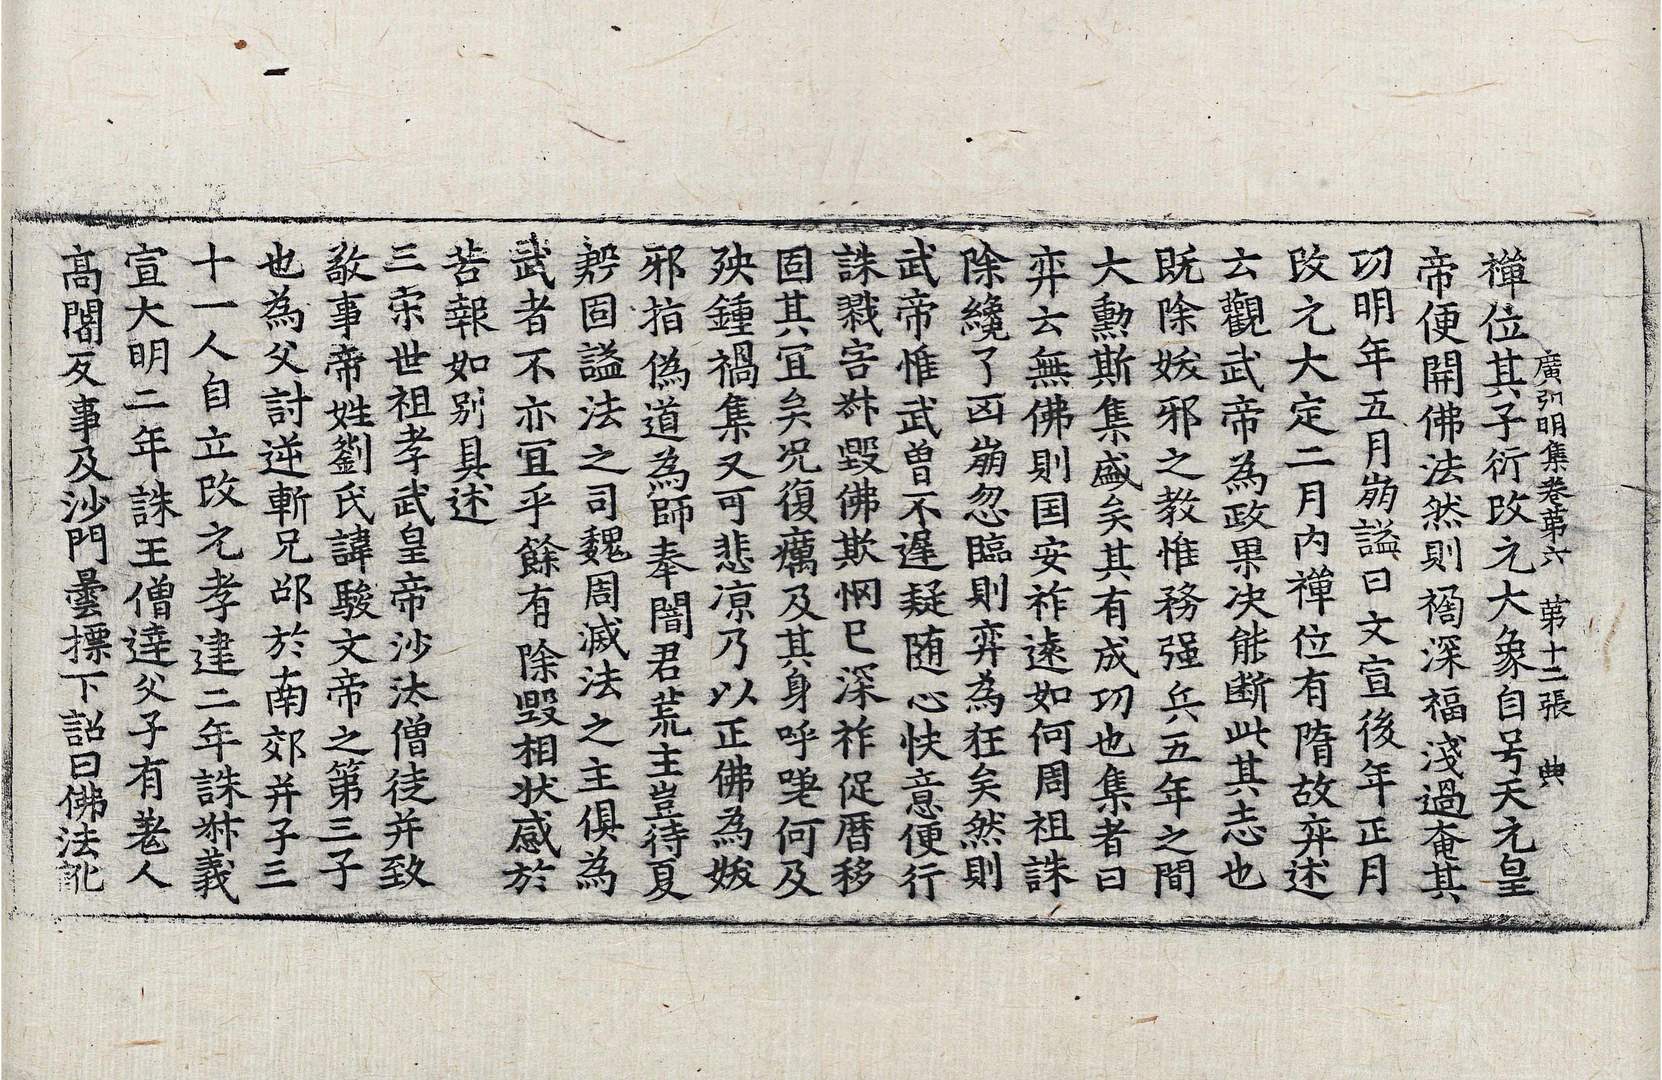 廣弘明集卷苐六 苐十二張 典
禪位其子衍改元大象自号天元皇
帝便開佛法然則禍深福淺過奄其
功明年五月崩謚曰文宣後年正月
改元大定二月內禪位有隋故弃述
云觀武帝為政果决能断此其志也
既除妖邪之教惟務强兵五年之間
大勲斯集盛矣其有成功也集者曰
弈云無佛則国安祚遠如何周祖誅
除纔了凶崩忽臨則弈為狂矣然則
武帝惟武曾不遲疑随心快意便行
誅戮害并毀佛欺怲已深祚促曆移
固其冝矣况復癘及其身呼嗟何及
殃鍾禍集又可悲凉乃以正佛為妖
邪指偽道為師奉闇君荒主豈待夏
虩固謚法之司魏周滅法之主俱為
武者不亦冝乎餘有除毀相状感於
苦報如别具述
三宋世祖孝武皇帝沙汰僧徒并致
敬事帝姓劉氏諱駿文帝之第三子
也為父討逆斬兄邵於南郊并子三
十一人自立改元孝建二年誅并義
宣大明二年誅王僧達父子有羗人
高闍反事及沙門曇摽下詔曰佛法訛